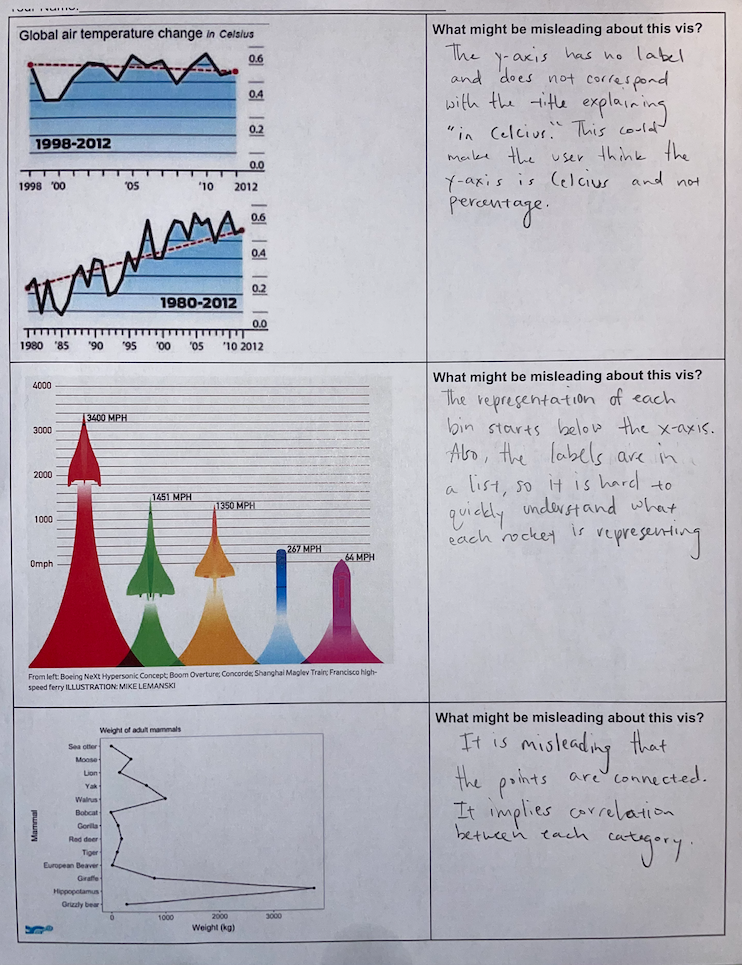 Your Name:
Global air temperature change in Celsius
0.6
0.4
0.2
0.0
1998-2012
1998 '00 '05 '10 2012
0.6
0.4
0.2
0.0
1980-2012
1980 '85 '90 '95 '00 '05 '10 2012
What might be misleading about this vis?
The y-axis has no label
and does not correspond
with the title explaining
"in Celcius." This could
make the user think the
y-axis is Celcius and not
percentage.
4000
3000
2000
1000
0mph
3400 MPH
1451 MPH
1350 MPH
267 MPH
64 MPH
From left: Boeing NeXt Hypersonic Concept; Boom Overture; Concorde; Shanghai Maglev Train; Francisco high-
speed ferry ILLUSTRATION: MIKE LEMANSKI
What might be misleading about this vis?
The representation of each
bin starts below the x-axis.
Also, the labels are in
a list, so it is hard to
quickly understand what
each rocket is representing
Weight of adult mammals
Mammal
Sea otter
Moose
Lion
Yak
Walrus
Bobcat
Gorilla
Red deer
Tiger
European Beaver
Giraffe
Hippopotamus
Grizzly bear
0 1000 2000 3000
Weight (kg)
What might be misleading about this vis?
It is misleading that
the points are connected.
It implies correlation
between each category.